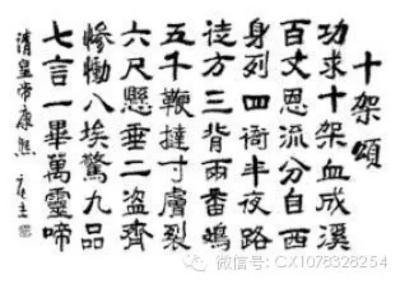 十架頌
功求十架血成溪
百丈恩流分自西
身列四衙半夜路
徒方三背兩番鳴
五千鞭撻寸膚裂
六尺懸垂二盜齊
慘慟八埃驚九品
七言一畢萬靈啼
清皇帝康熙
微信号: CX1078328254